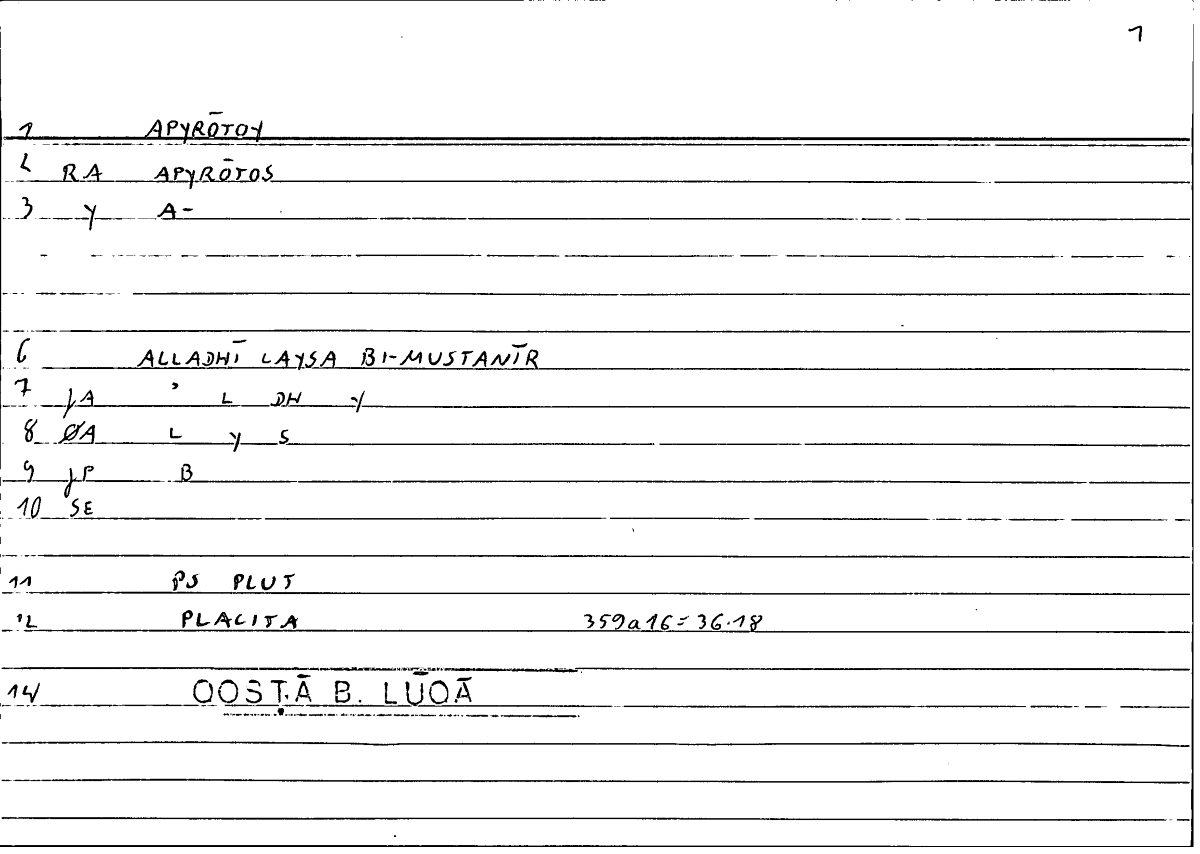 1
1 APYRŌTOY
2 RA APYRŌTOS
3 Y A-
6 ALLADHĪ LAYSA BI-MUSTANĪR
7 JA ʾ L DH Y
8 ØA L Y S
9 JP B
10 SE
11 PS PLUT
12 PLACITA 359a16=36.18
14 QOSṬĀ B. LŪQĀ